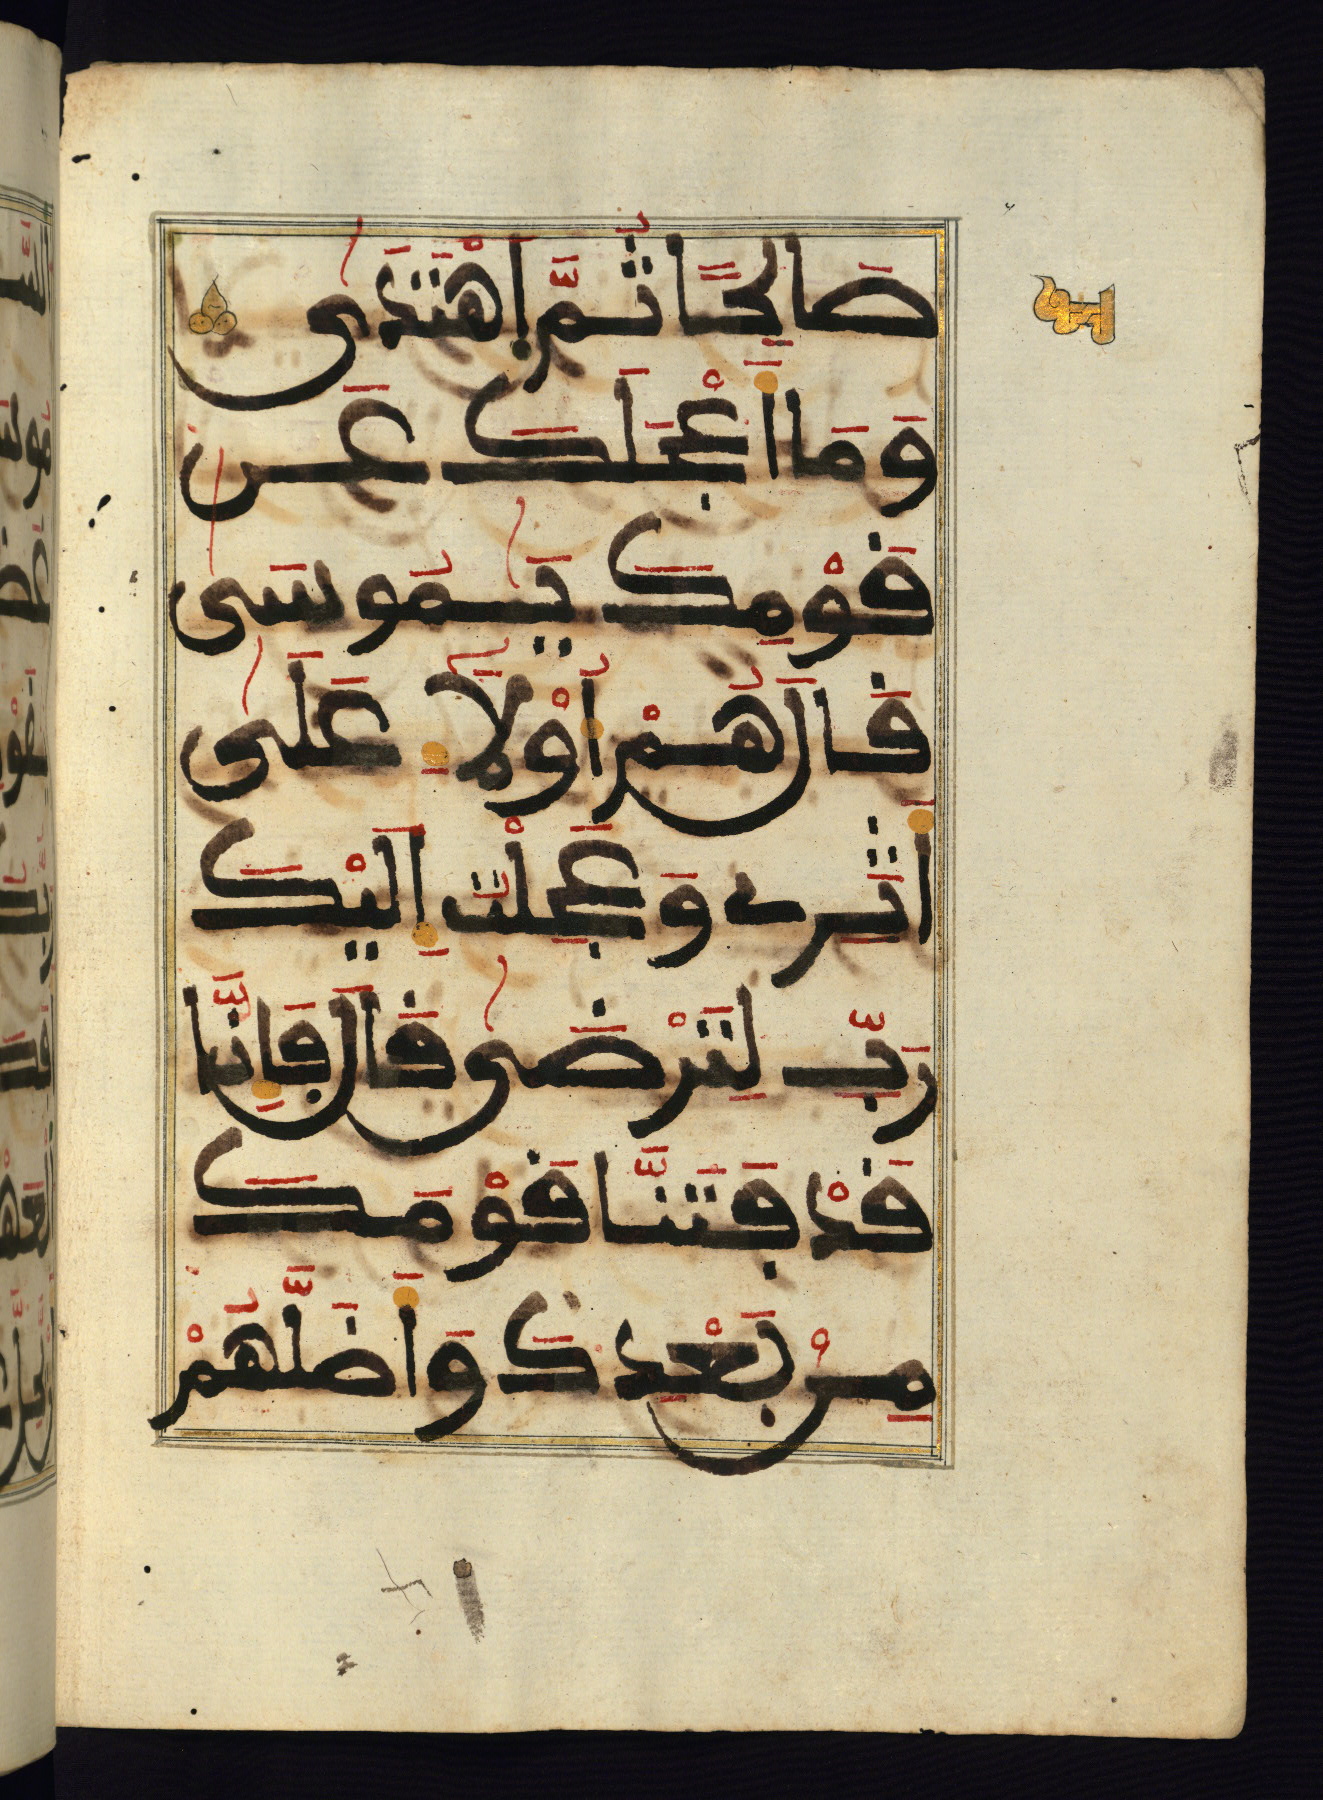 صَالِحًا ثُمَّ اَهْتَدَىٰ
وَمَا أَعْجَلَكَ عَن
قَوْمِكَ يَٰمُوسَىٰ
قَالَ هُمْ أُوْلَآءِ عَلَىٰ
أَثَرِے وَعَجِلْتُ إِلَيْكَ
رَبِّ لِتَرْضَىٰ قَالَ فَإِنَّا
قَدْ فَتَنَّا قَوْمَكَ
مِنۢ بَعْدِكَ وَأَضَلَّهُمْ